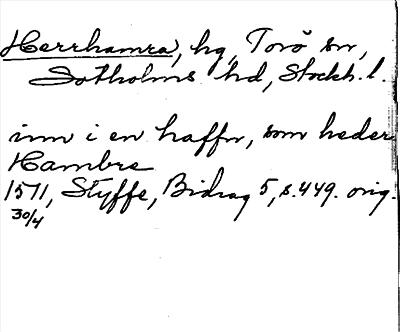 Herrhamra, hg, Torö sn,
Sotholms hd, Stockh. l.
inn i en haffn, som heder
Hambre
1511, Styffe, Bidrag 5, s. 449. orig.
30/4